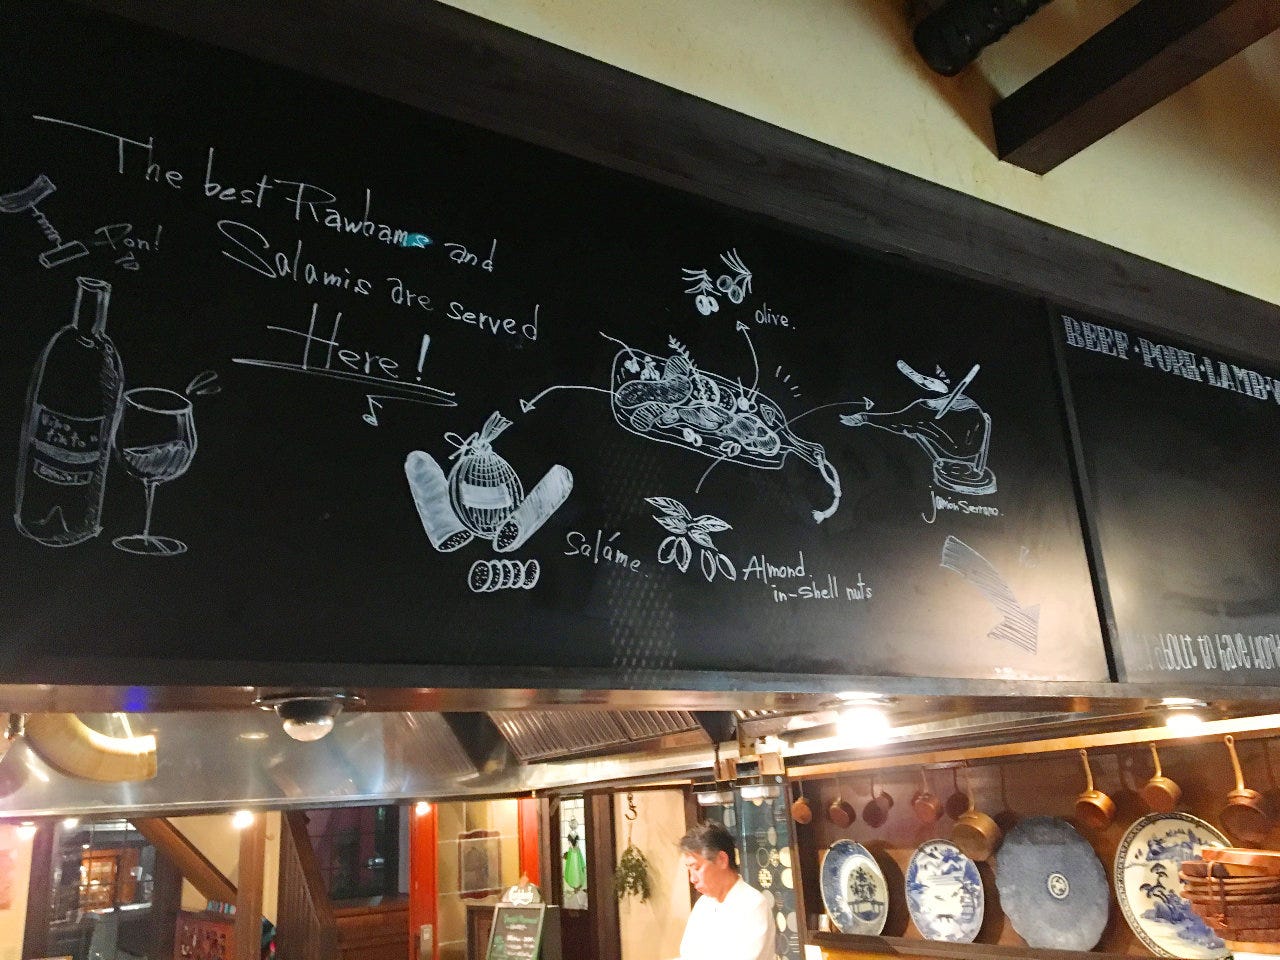 The best Rawhams and
Salamis are served
Here!
Pon!
Vino
tinto
olive.
Jamón Serrano.
Saláme.
Almond.
in-shell nuts
BEEF·PORK·LAMB
about to have